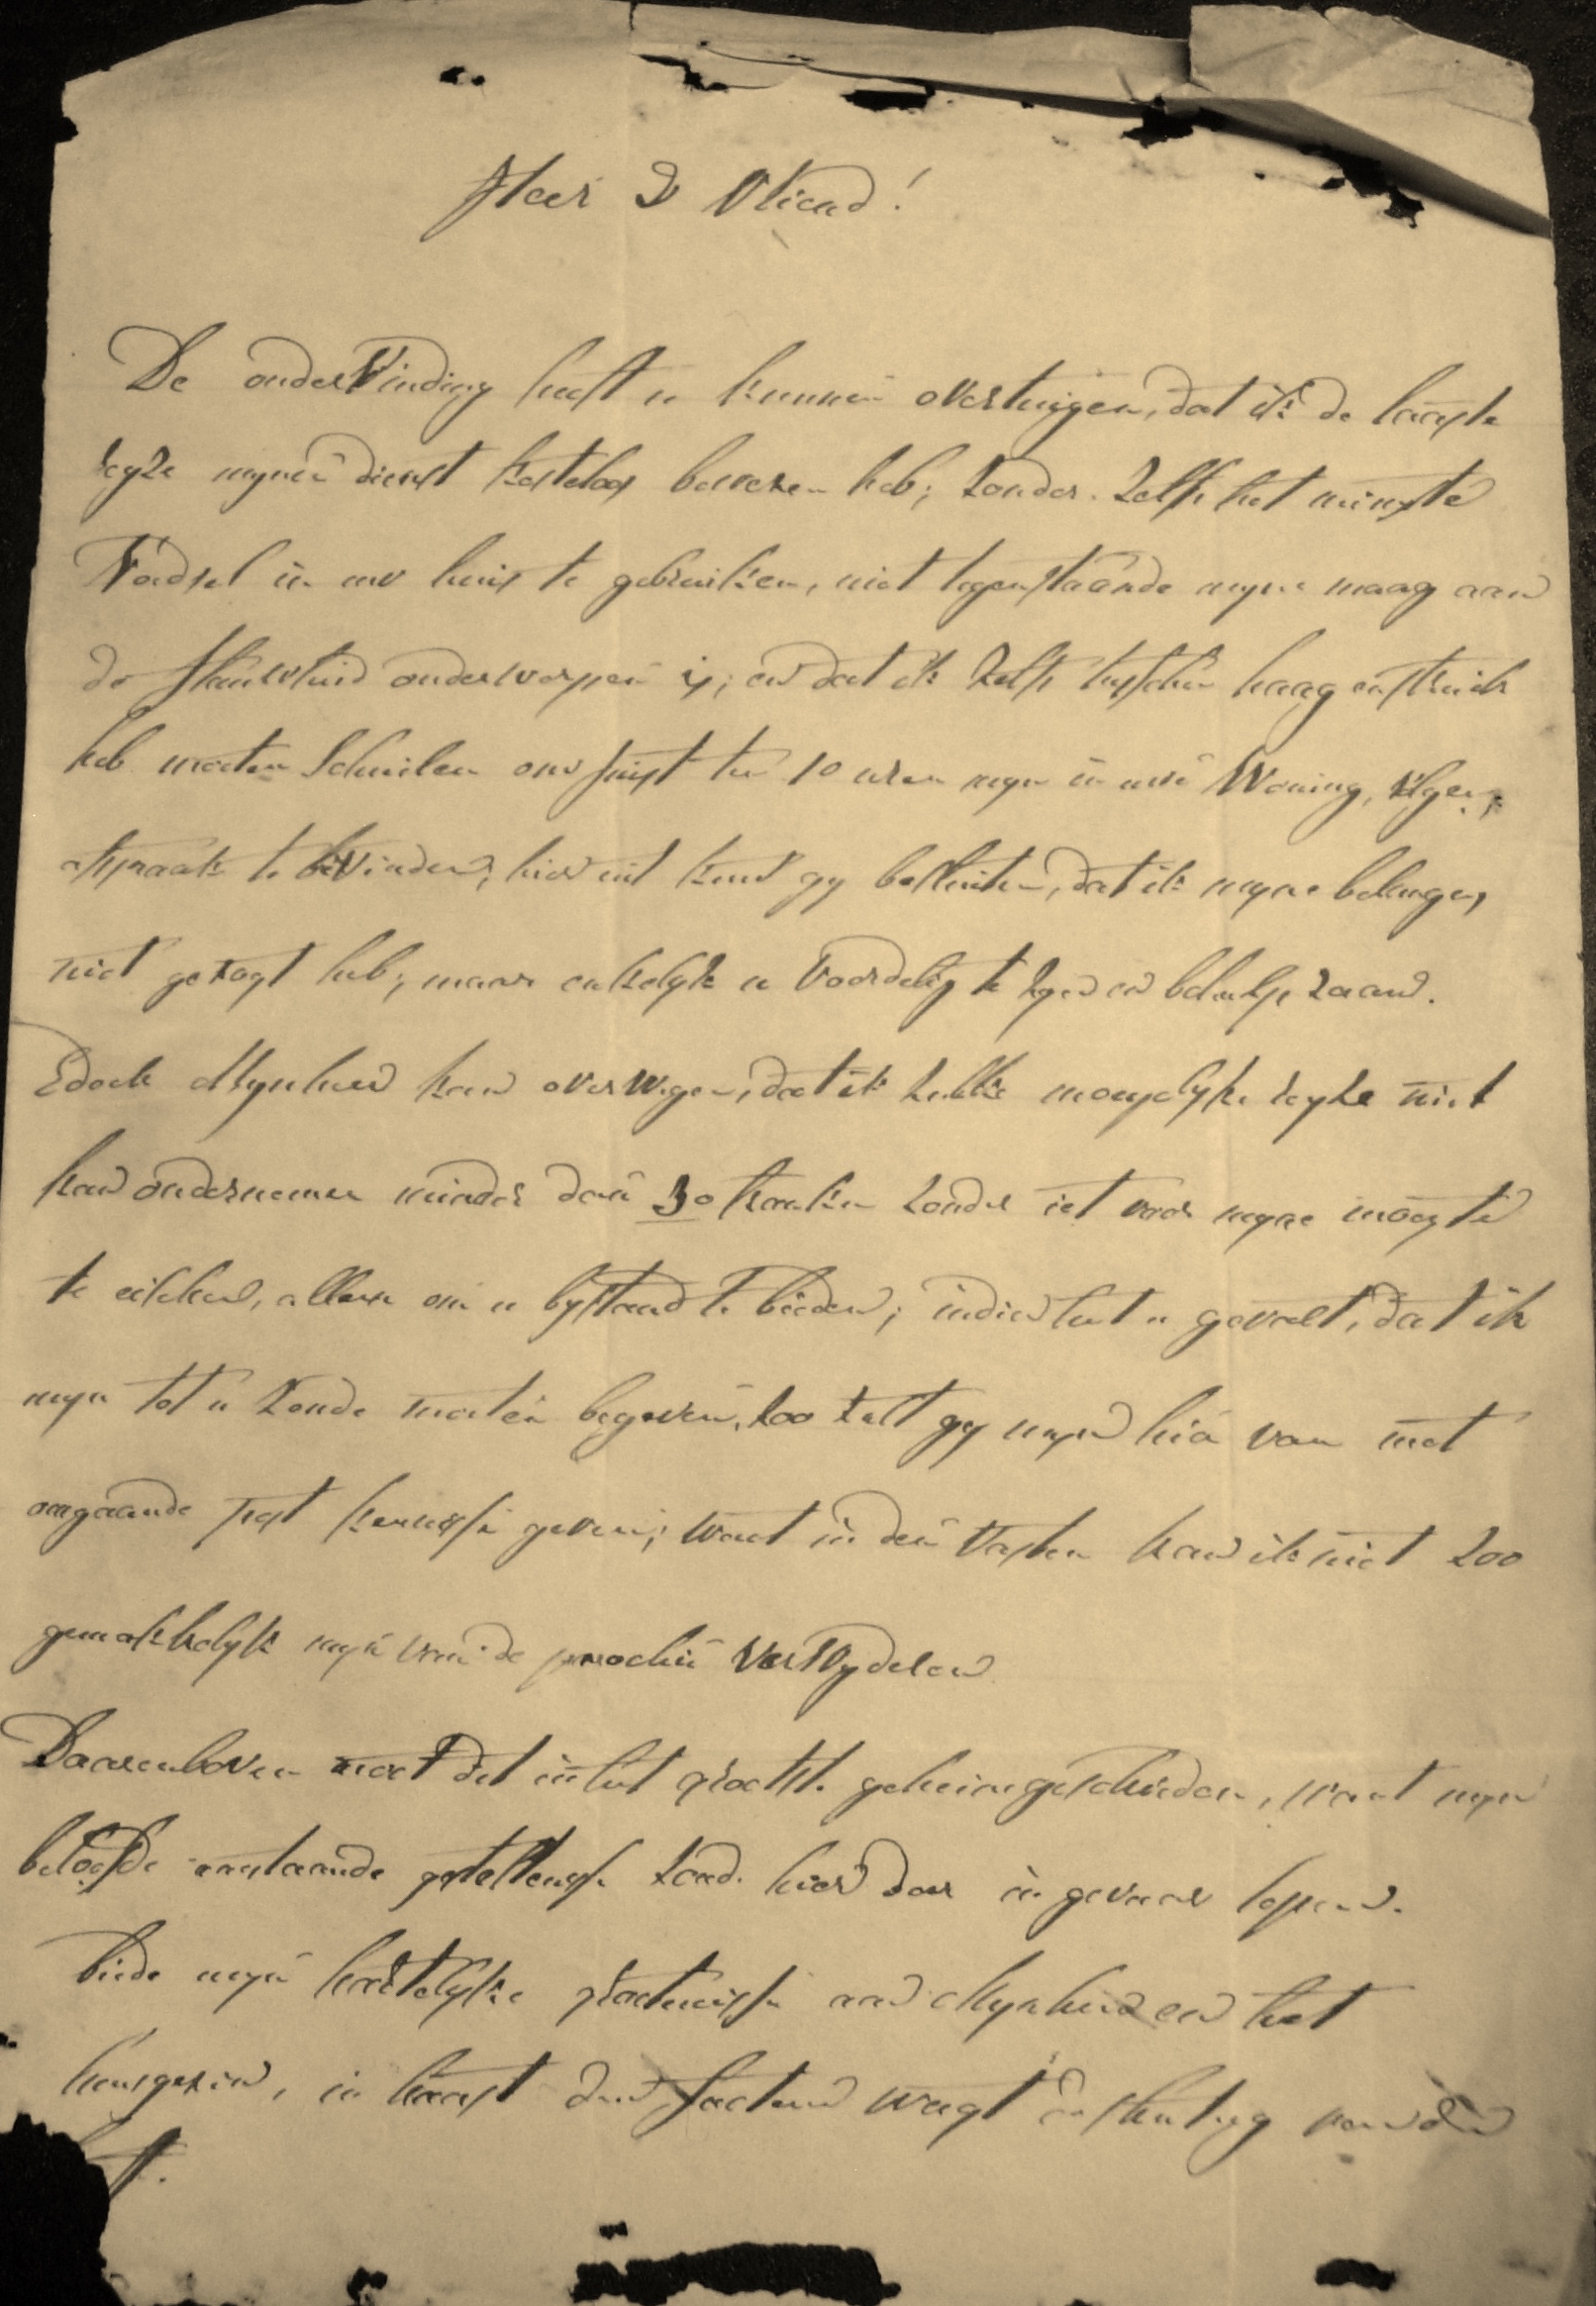 Heer & Vriend!
De ondervinding heeft u kunnen overtuigen, dat ik de laaste
reyze mynen dienst kosteloos bewezen heb; zonder zelfs het minste
Voedsel in uw huis te gebruiken, niet tegenstaande myne maag aan
de flauwtheid onderworpen is; en dat ik zelfs tusschen haag en struik
heb moeten schuilen om juist ten 10 uren myn in uwe Wooning, volgens
afspraak te bevinden; hier uit kunt gy besluiten, dat ik myne belangen
niet gezogt heb; maar enkelyk u voordelig te zyn en behulpzaam.
Edoch Mynheer kan overwegen, dat ik zulke moeyelyke reyze niet
kan ondernemen minder dan 30 franken zonder iet voor myne moeyte
te eischen, alleen om u bystand te bieden; indien het u gevalt, dat ik
myn tot u zoude moeten begeven, zoo zult gy myn hier van met
omgaande post kennisse geven; want in den Vasten kan ik niet zoo
gemakkelyk myn van de parochie verwyderen
Daarenboven moet dit in het grootste geheim geschieden, want myn
beloofde aanstaande zoude hier door in gevaar lopen.
biede myn hartelyke groetenisse aan Mynheer en het
huisgezin, in haast